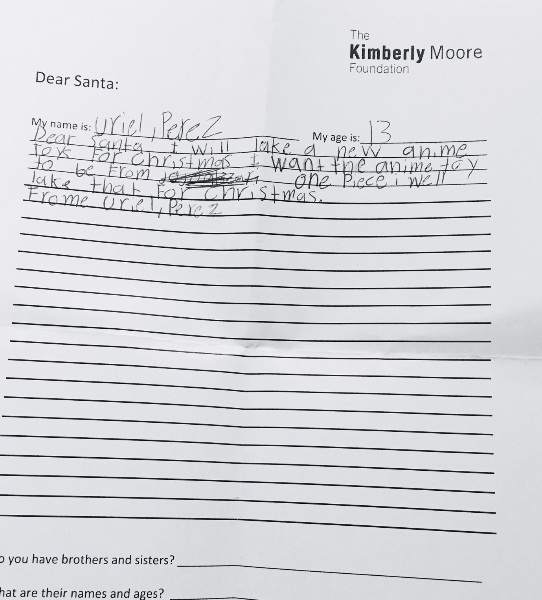 The
Kimberly Moore
Foundation
Dear Santa:
My name is: Uriel, Perez My age is: 13
Dear Santa I will lake a new anime
Toys For Christmas I want the anime toy
To be From one Piece i well
lake that For Christmas.
Frome Uriel, Perez
o you have brothers and sisters?
hat are their names and ages?